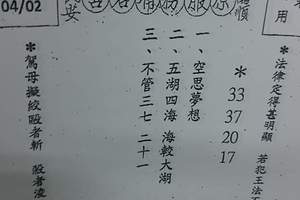 04/02
用
*法律定得甚明顯 若犯王法
*
33
37
20
17
一、空思夢想
二、五湖四海 海較大湖
三、不管三七 二十一
*駕母擬絞毆者斬 殺者凌